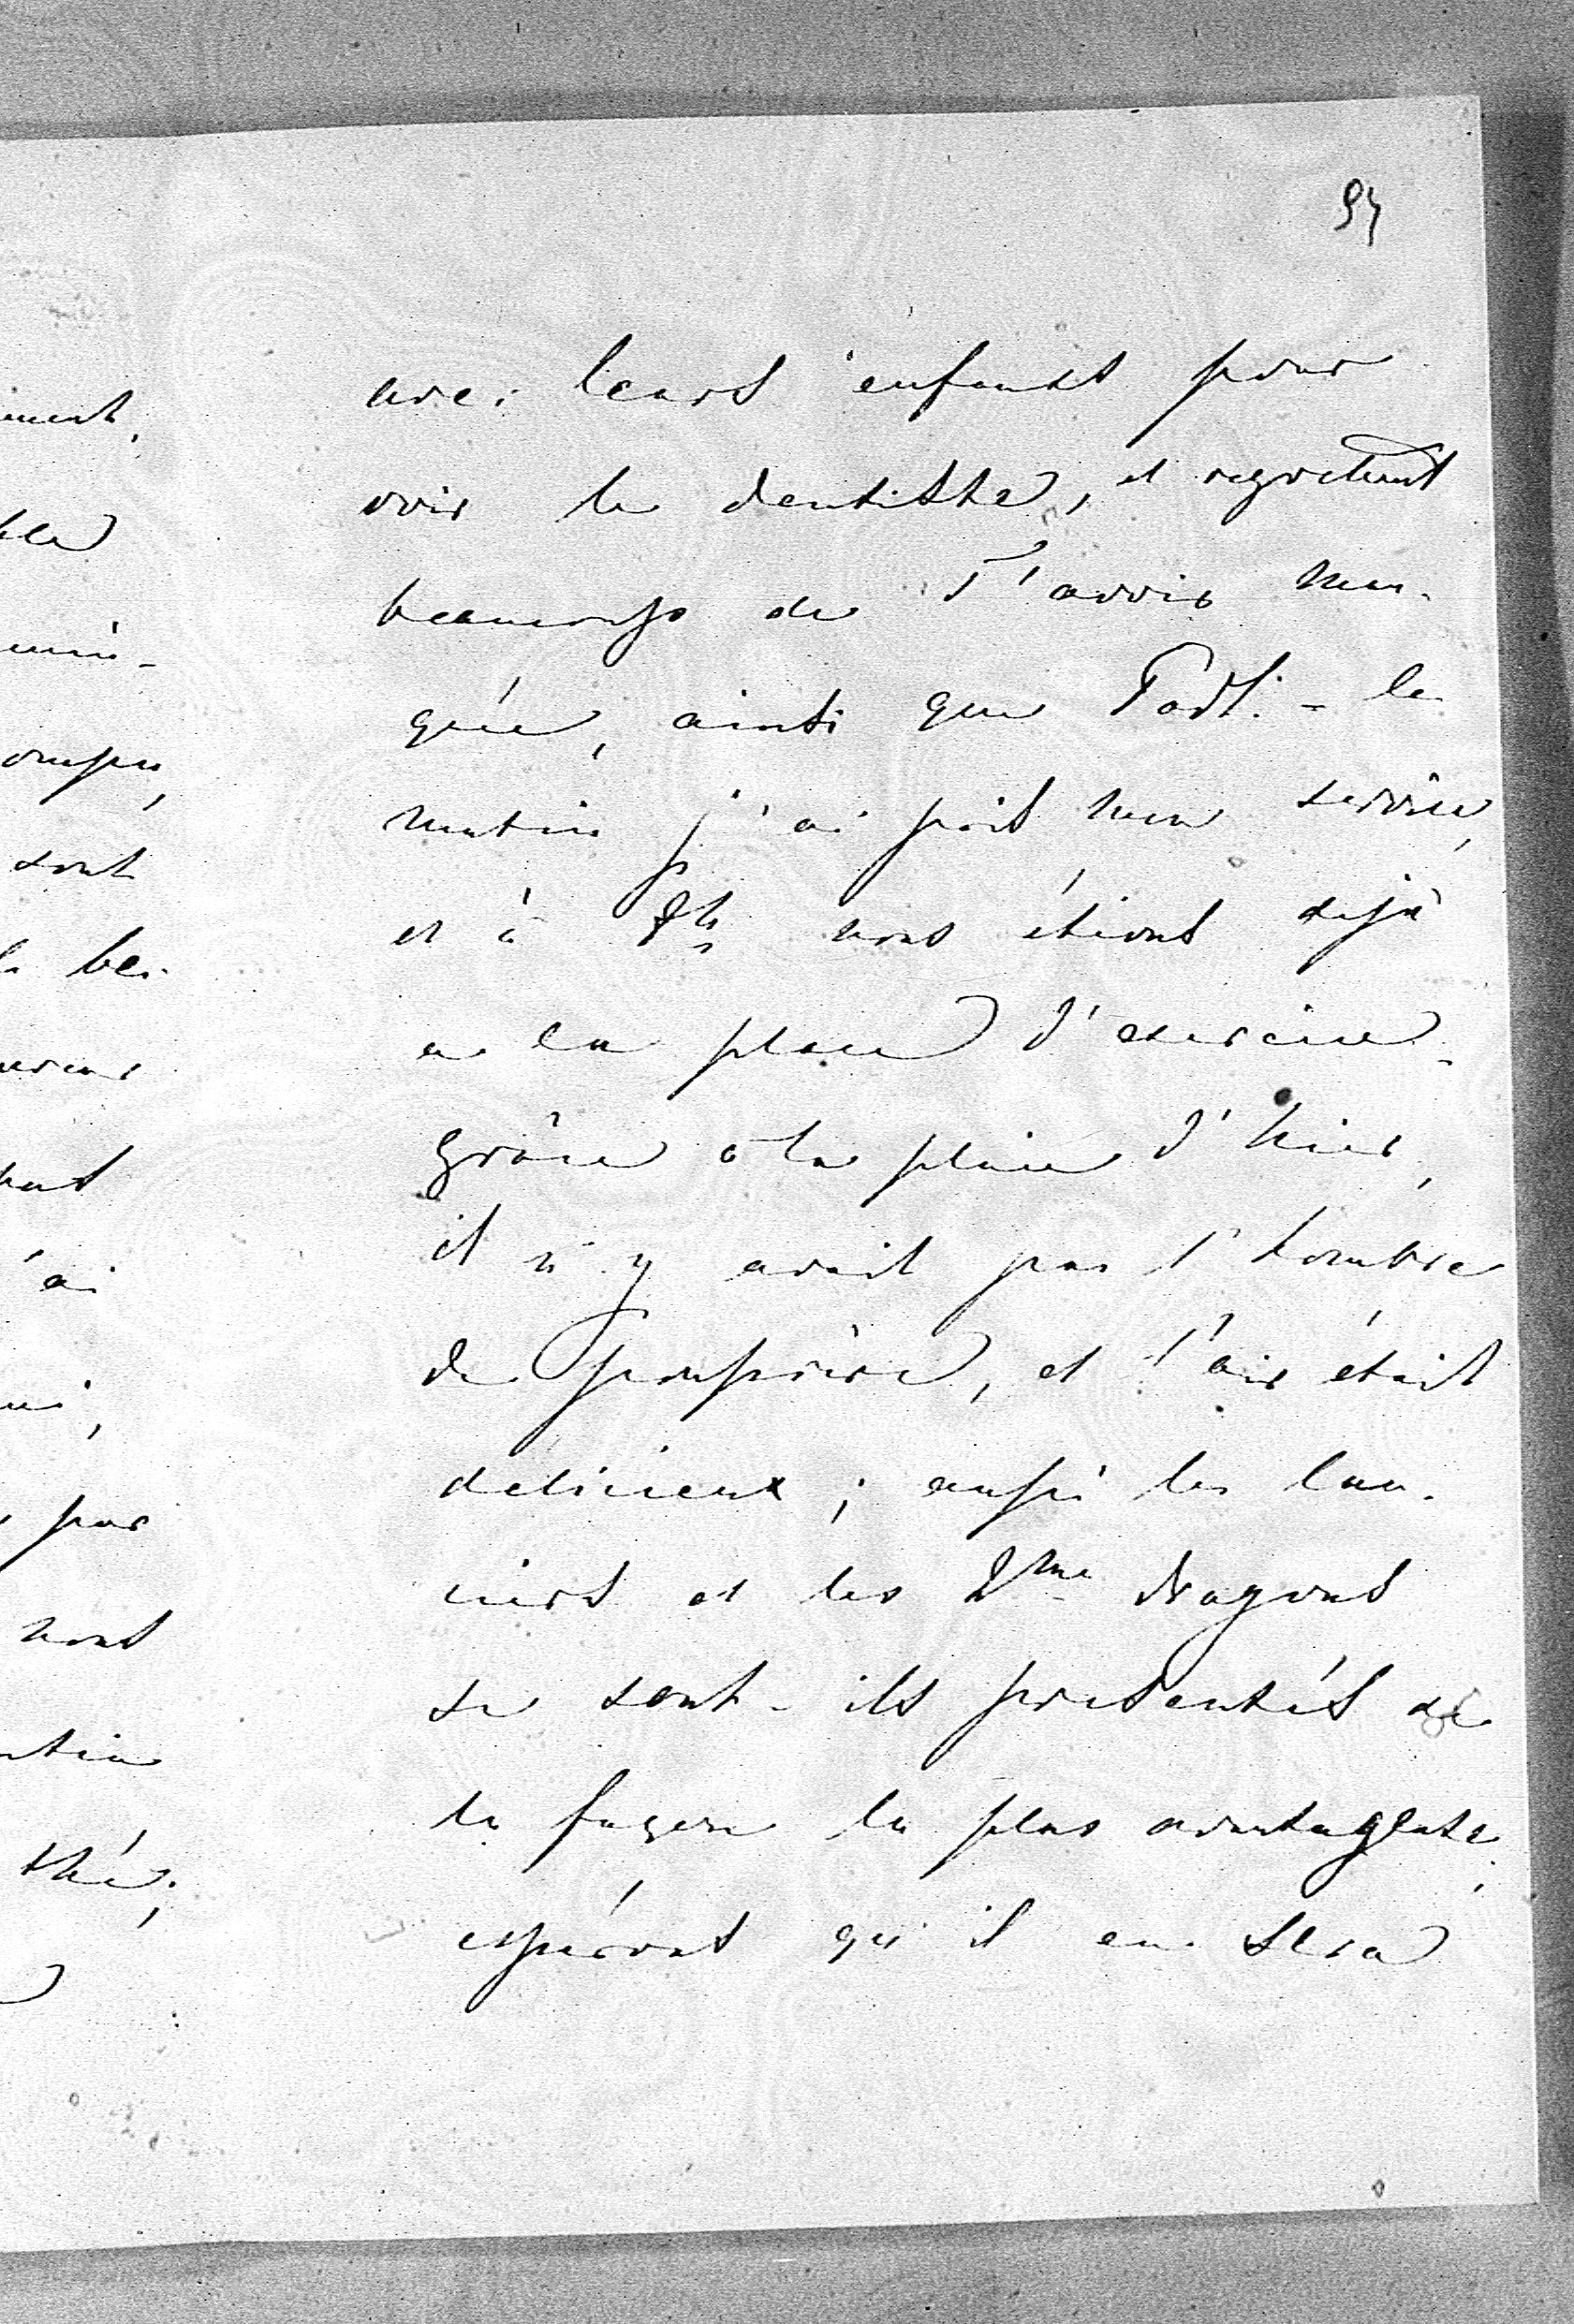 94
avec leurs enfants pour
voir le dentiste, et regrettent
beaucoup de t'avoir man-
quée, ainsi que - le
matin j'ai pris mon service,
et à 8h nous étions déjà
a la place d'exercice.
grâce à la pluie d'hier,
il n'y avait pas l'hombre
de poussière, et l'air était
delicieux ; aussi les lan-
ciers et les 8me dragons
se sont-ils présentés de
la façon la plus avantageuse,
espérons qu'il en sera
ment,
sont
par
nous
thé;